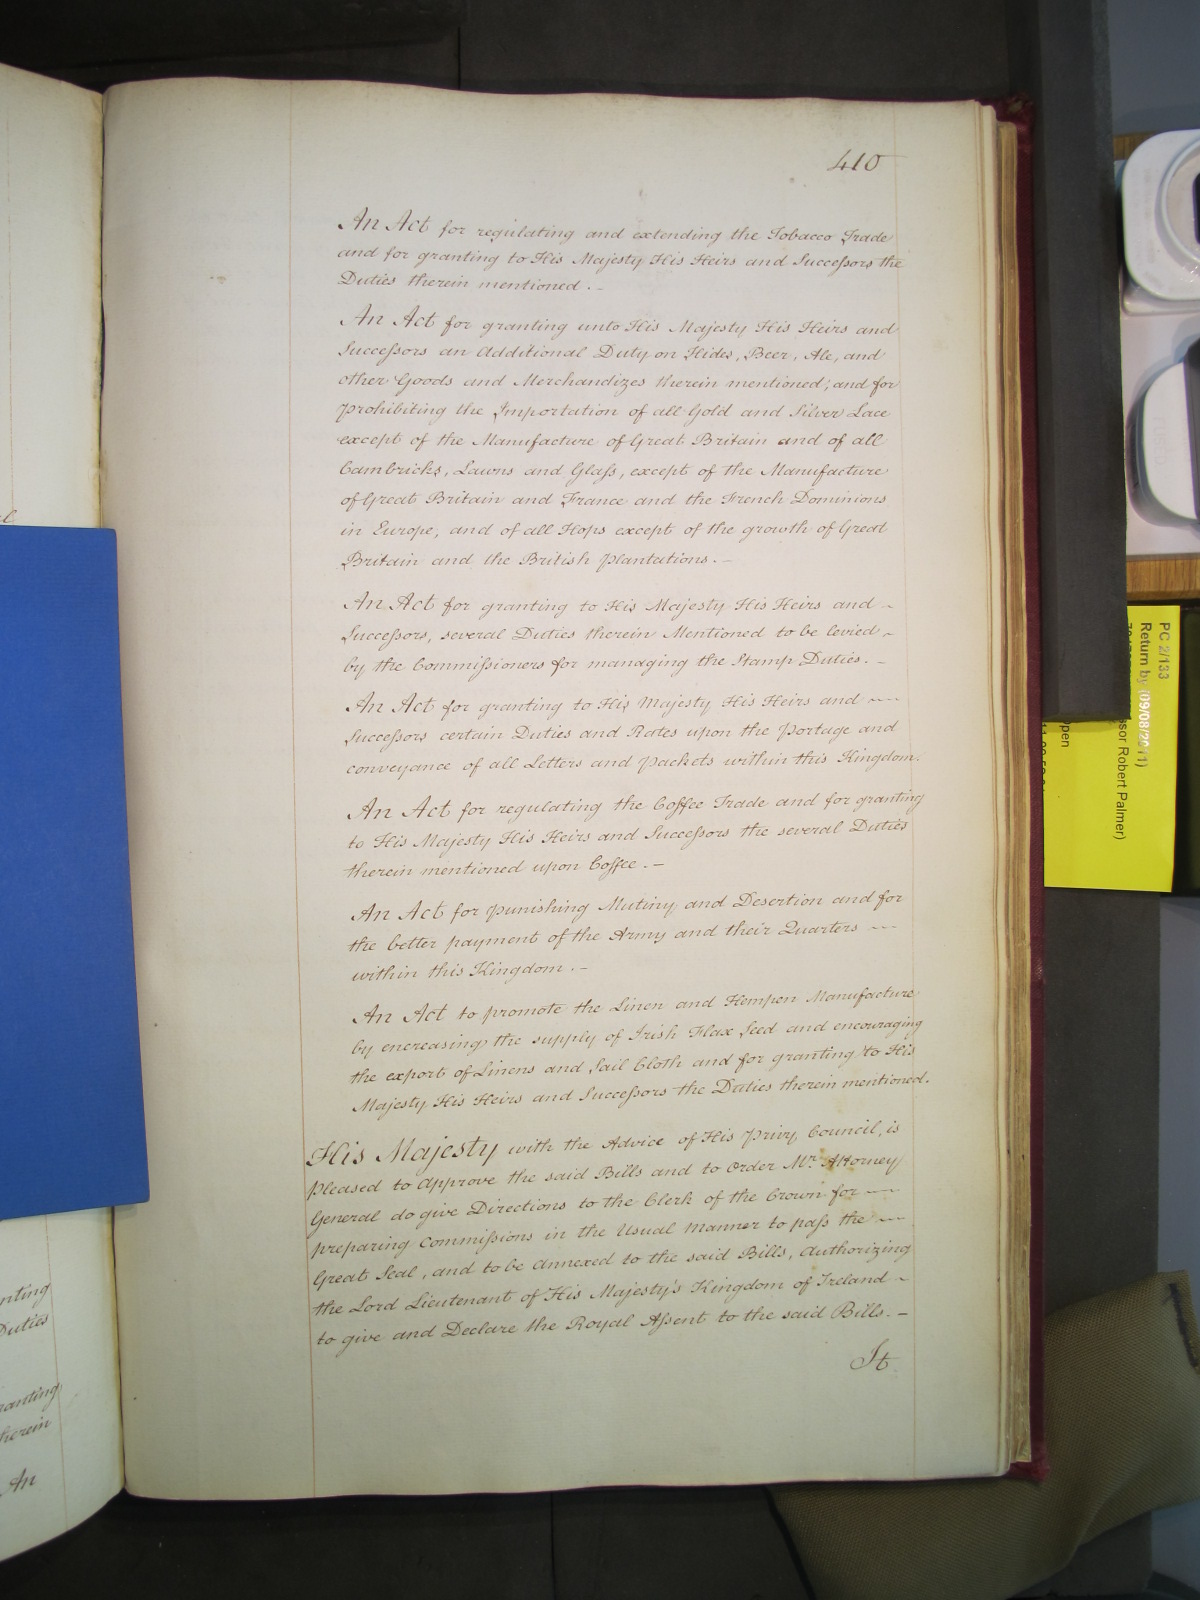 410
An Act for regulating and extending the Tobacco Trade
and for granting to His Majesty His Heirs and Successors the
Duties therein mentioned. -
An Act for granting unto His Majesty His Heirs and
Successors an Additional Duty on Hides, Beer, Ale, and
other Goods and Merchandizes therein mentioned; and for
prohibiting the Importation of all Gold and Silver Lace
except of the Manufacture of Great Britain and of all
Cambricks, Lawns and Glass, except of the Manufacture
of Great Britain and France and the French Dominions
in Europe, and of all Hops except of the growth of Great
Britain and the British plantations. -
An Act for granting to His Majesty His Heirs and -
Successors, several Duties therein Mentioned to be levied -
by the Commissioners for managing the Stamp Duties. -
An Act for granting to His Majesty His Heirs and -
Successors certain Duties and Rates upon the Portage and
conveyance of all Letters and packets within this Kingdom.
An Act for regulating the Coffee Trade and for granting
to His Majesty His Heirs and Successors the several Duties
therein mentioned upon Coffee. -
An Act for punishing Mutiny and Desertion and for
the better payment of the Army and their Quarters -
within this Kingdom. -
An Act to promote the Linen and Hempen Manufacture
by encreasing the supply of Irish Flax Seed and encouraging
the export of Linens and Sail Cloth and for granting to His
Majesty His Heirs and Successors the Duties therein mentioned.
His Majesty with the Advice of His Privy Council, is
pleased to approve the said Bills and to Order Mr. Attorney
General do give Directions to the Clerk of the Crown for -
preparing Commissions in the Usual manner to pass the -
Great Seal, and to be Annexed to the said Bills, Authorizing
the Lord Lieutenant of His Majesty's Kingdom of Ireland -
to give and Declare the Royal Assent to the said Bills. -
It
nting
Duties
ranting
herein
An
PC 2/133
Return by (09/08/2011)
ssor Robert Palmer)
pen